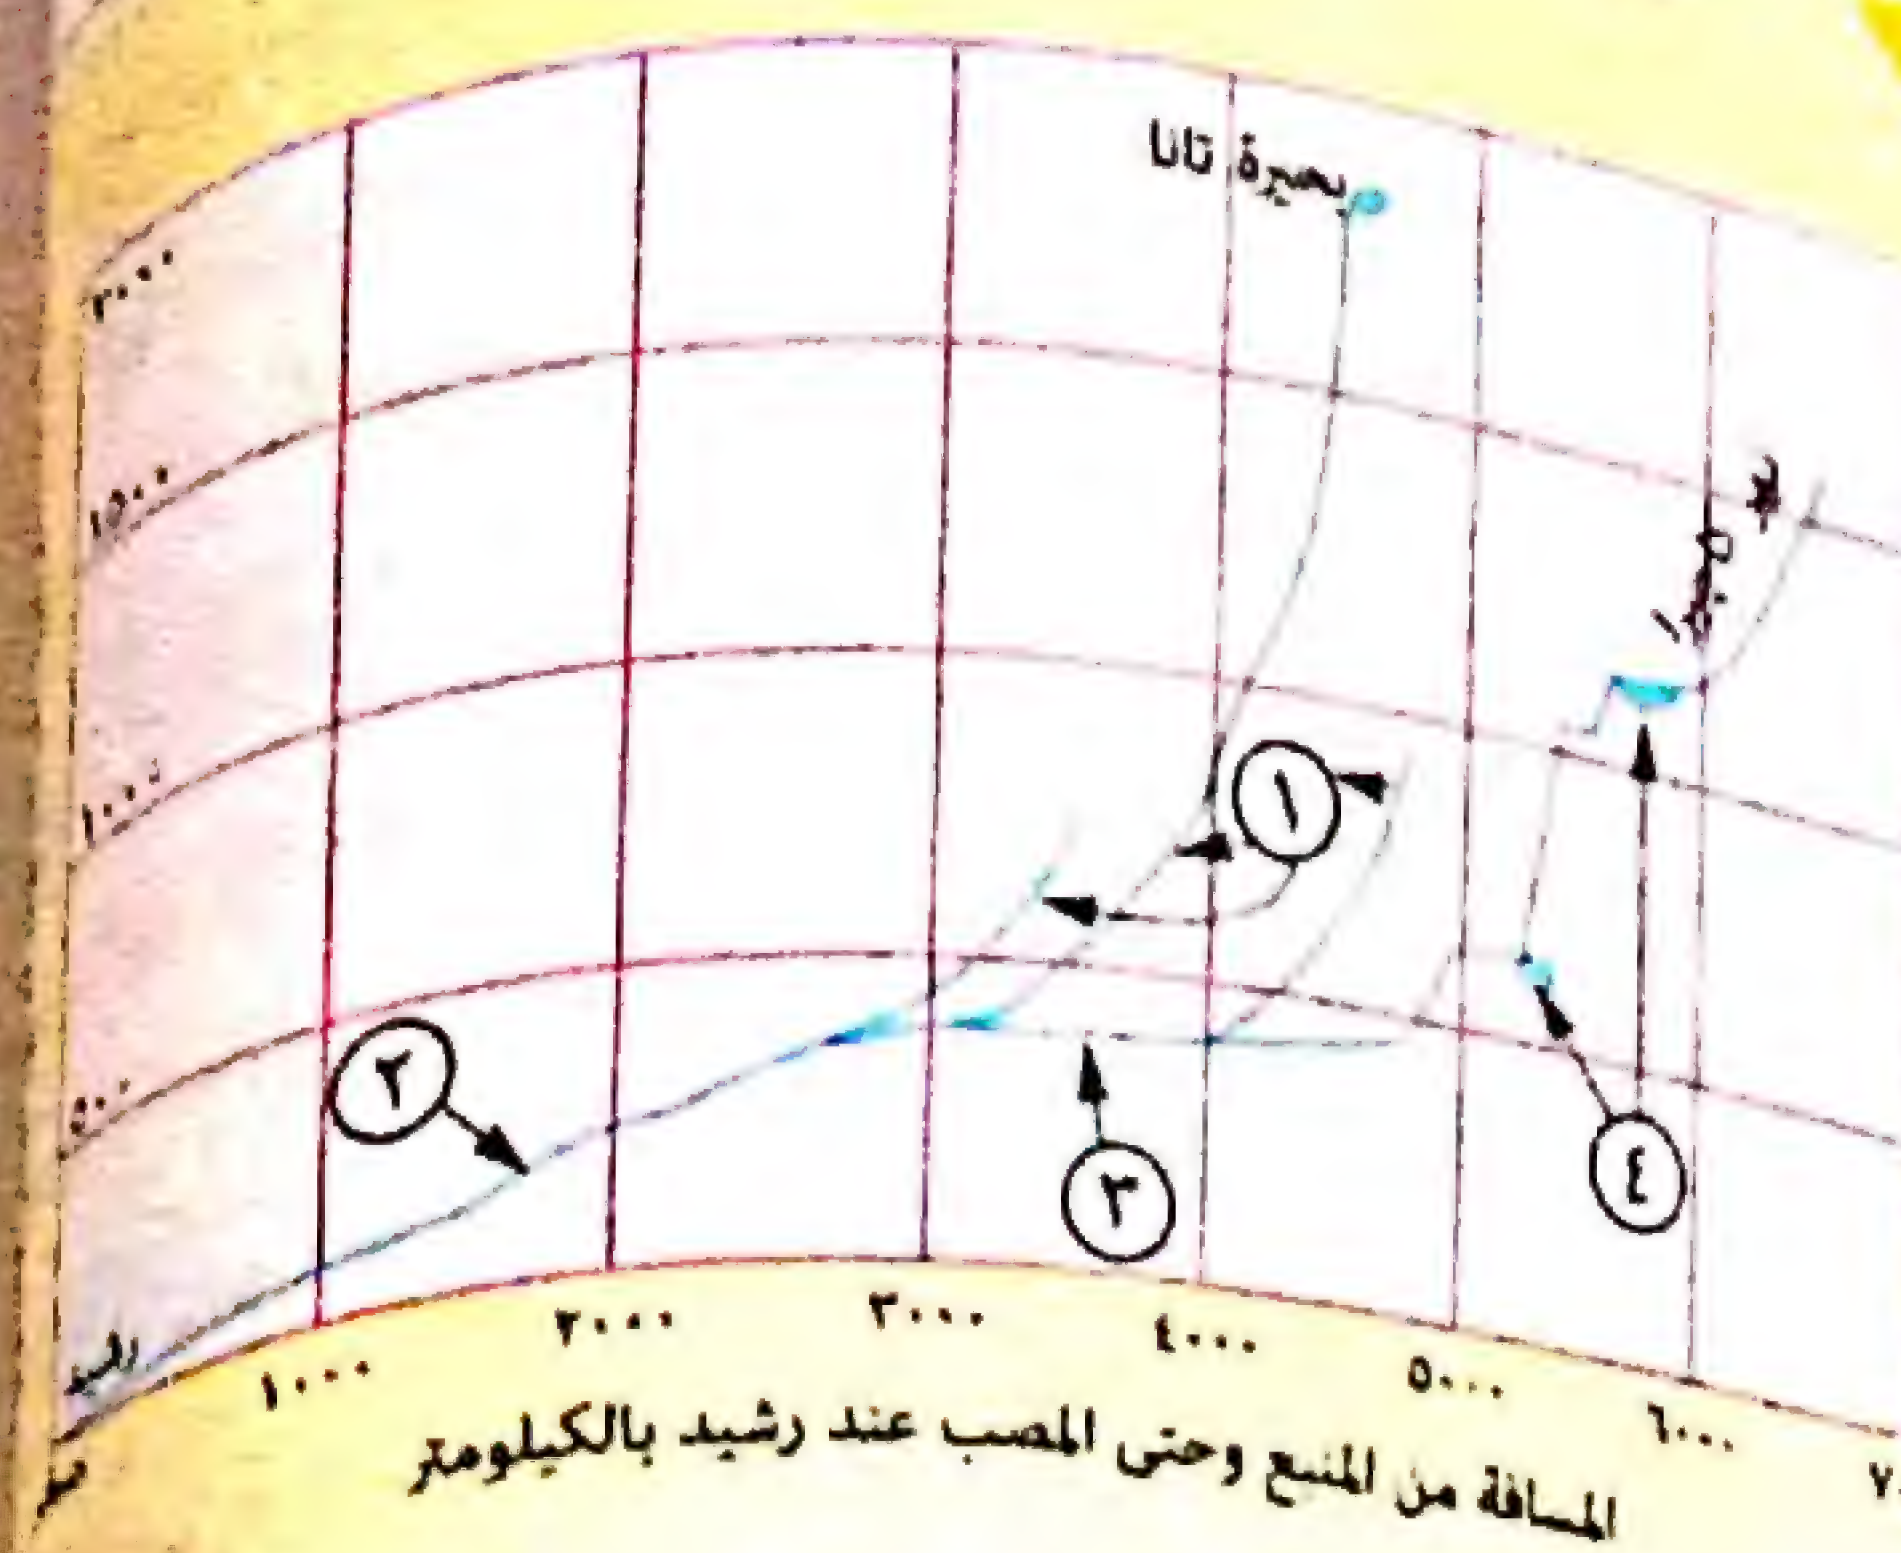 بحيرة تانا
٢٠٠٠
١٥٠٠
١٠٠٠
٥٠٠
١
٢
٣
٤
صفر
١٠٠٠
٢٠٠٠
٣٠٠٠
٤٠٠٠
٥٠٠٠
٦٠٠٠
المسافة من المنبع وحتى المصب عند رشيد بالكيلومتر